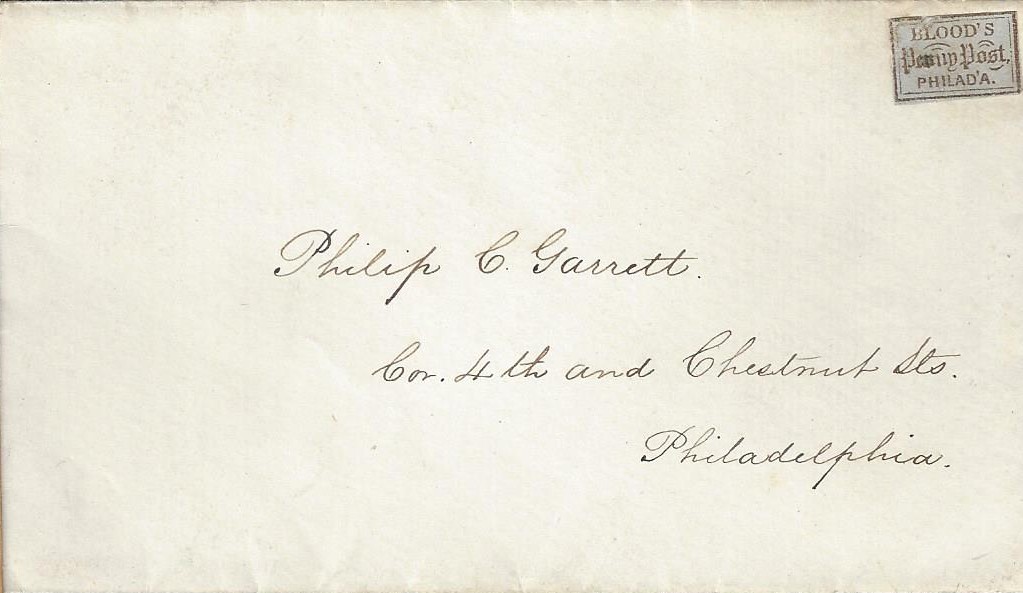 BLOOD'S
Penny Post,
PHILAD'A.
Philip C. Garrett.
Cor. 4th and Chestnut Sts.
Philadelphia.